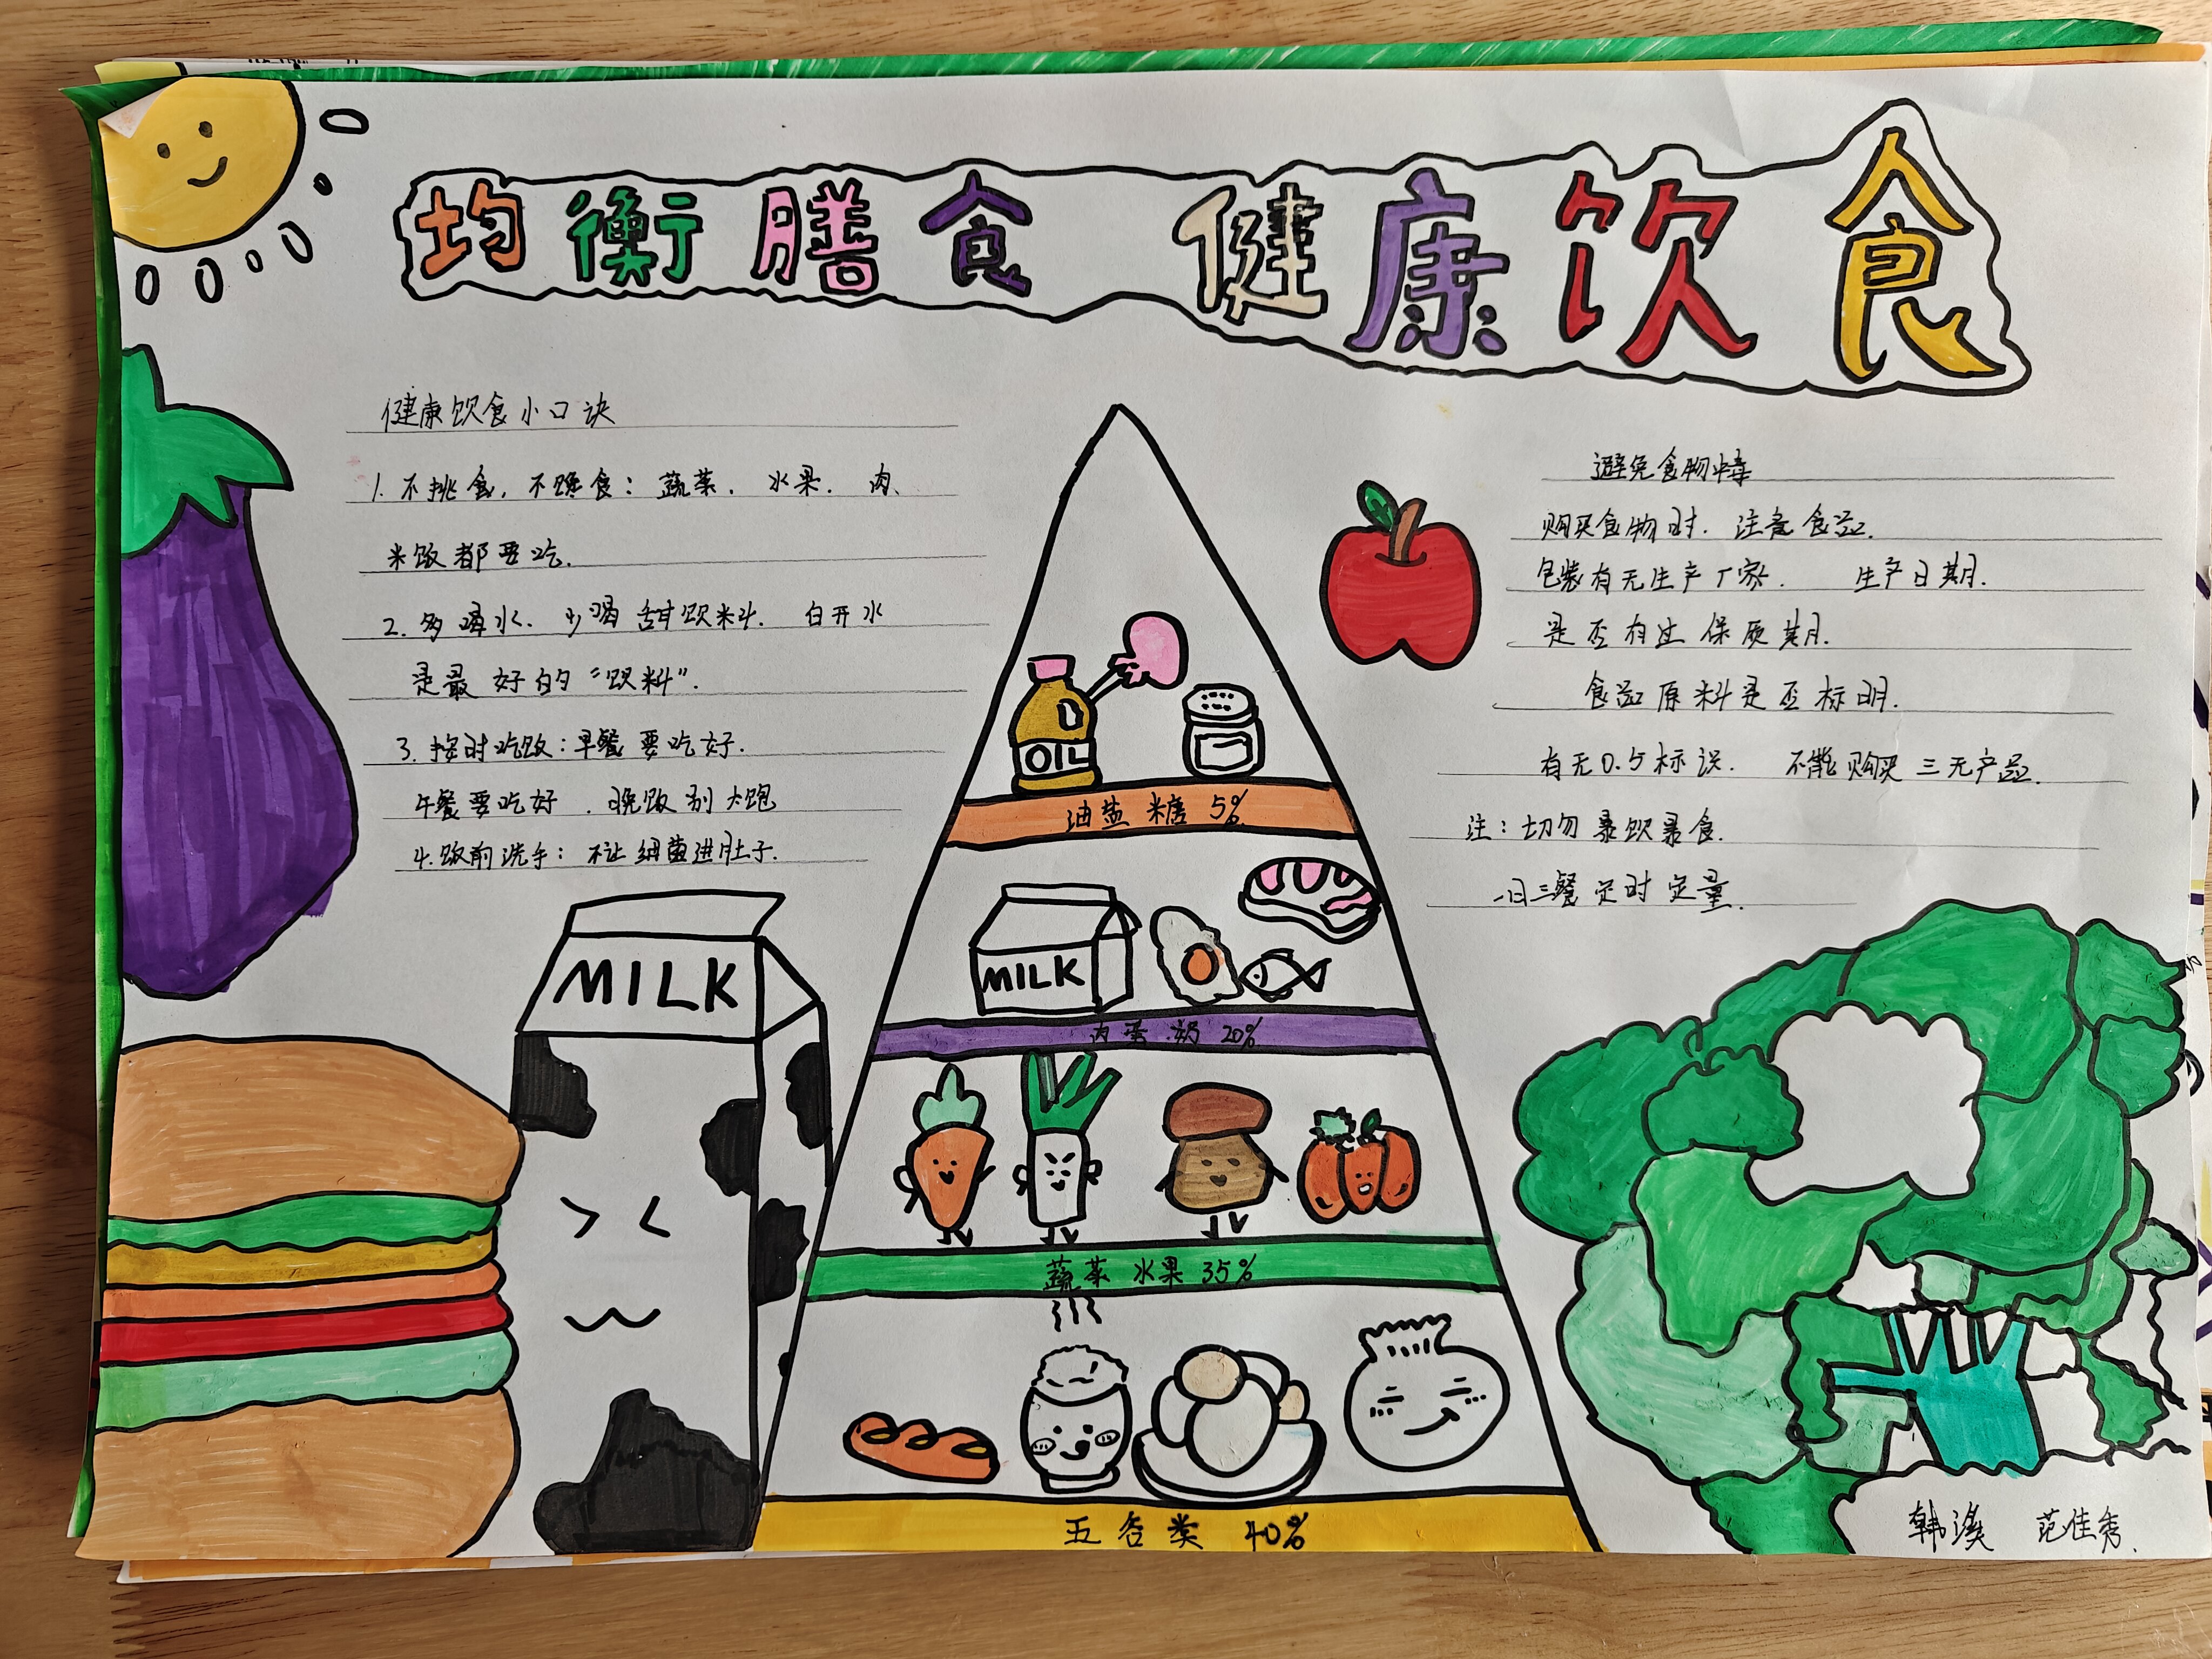 均衡膳食 健康饮食
健康饮食小口诀
1. 不挑食, 不挑食: 蔬菜. 水果. 肉、
米饭都要吃.
2. 多喝水. 少喝甜饮料. 白开水
是最好的“饮料”.
3. 按时吃饭: 早餐要吃好.
午餐要吃好. 晚饭别太饱
4. 饭前洗手: 不让细菌进肚子.
避免食物中毒
购买食物时. 注意食品.
包装有无生产厂家. 生产日期.
是否有过保质期.
食品原料是否标明.
有无0.5标识. 不能购买三无产品.
注: 切勿暴饮暴食.
一日三餐定时定量.
OIL
油盐糖 5%
MILK
肉蛋奶 20%
蔬菜 水果 35%
五谷类 40%
MILK
韩 范佳秀.